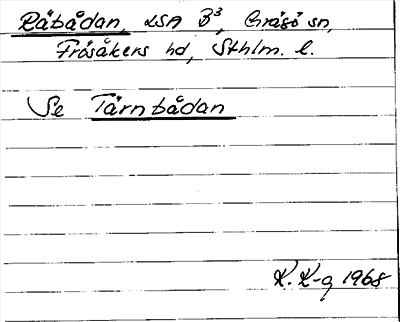 Råbådan, LSA B³, Gräsö sn,
Frösåkers hd, Sthlm. l.
Se Tärnbådan
K. K-g 1968